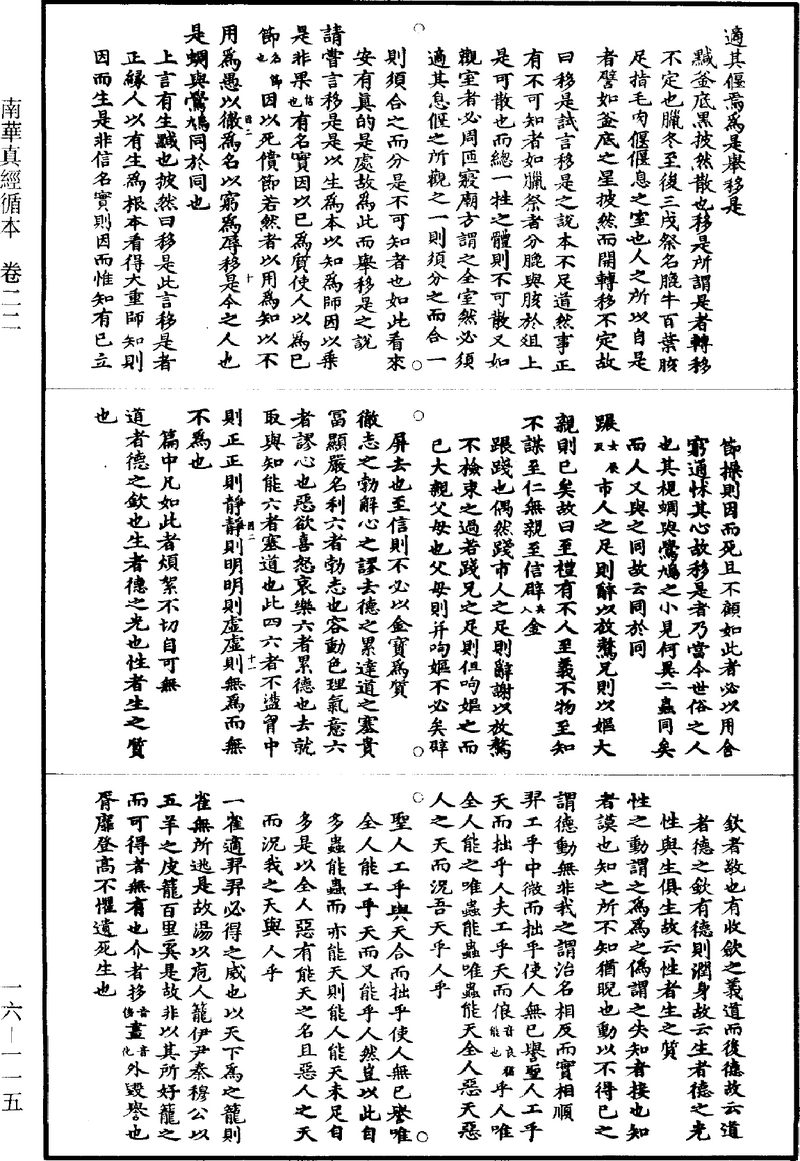 南華真經循本　卷二二
一六—一一五
適其偃焉為是舉移是
黬釜底黑披然散也移是所謂是者轉移
不定也臘冬至後三戌祭名膍牛百葉胲
足指毛肉偃偃息之室也人之所以自是
者譬如釜底之呈披然而開轉移不定故
曰移是試言移是之說本不足道然事正
有不可知者如臘祭者分膍與胲於俎上
是可散也而總一牲之體則不可散又如
觀室者必周匝寢廟方謂之全室然必須
適其息偃之所觀之一則須分之而合一
則須合之而分是不可知者也如此看來
安有真的是處故為此而舉移是之說
請嘗言移是是以生為本以知為師因以乘
是非果信也有名實因以已為質使人以為已
節名節也因以死償節若然者以用為知以不
用為愚以徹為名以窮為辱移是今之人也
是蜩與鷽鳩同於同也
上言有生黬也披然曰移是此言移是者
正緣人以有生為根本看得大重師知則
因而生是非信名實則因而惟知有已立
節操則因而死且不顧如此者必以用舍
窮通怵其心故移是者乃當今世俗之人
也其視蜩與鷽鳩之小見何異二蟲同矣
而人又與之同故云同於同
蹍女展反市人之足則辭以放驁兄則以嫗大
親則已矣故曰至禮有不人至義不物至知
不謀至仁無親至信辟金
蹍踐也偶然踐市人之足則辭謝以放驁
不檢束之過若踐兄之足則但呴嫗之而
已大親父母也父母則并呴嫗不必矣辟
屏去也至信則不必以金寶為質
徹志之勃解心之謬去德之累達道之塞貴
富顯嚴名利六者勃志也容動色理氣意六
者謬心也惡欲喜怒哀樂六者累德也去就
取與知能六者塞道也此四六者不盪胷中
則正正則靜靜則明明則虛虛則無為而無
不為也
篇中凡如此者煩絮不切自可無
道者德之欽也生者德之光也性者生之質
也
欽者敬也有收歛之義道而後德故云道
者德之欽有德則潤身故云生者德之光
性與生俱生故云性者生之質
性之動謂之為為之偽謂之失知者接也知
者謨也知之所不知猶睨也動以不得已之
謂德動無非我之謂治名相反而實相順
羿工乎中微而拙乎使人無已譽聖人工乎
天而拙乎人夫工乎天而俍音良能也乎人唯
全人能之唯蟲能蟲唯蟲能天全人惡天惡
人之天而況吾天乎人乎
聖人工乎與天合而拙乎使人無已譽唯
全人能工乎天而又能乎人然豈以此自
多蟲能蟲而亦能天則能人能天未足自
多是以全人惡有能天之名且惡人之天
而況我之天與人乎
一雀適羿羿必得之威也以天下為之籠則
雀無所逃是故湯以庖人籠伊尹秦穆公以
五羊之皮籠百里奚是故非以其所好籠之
而可得者無有也介者拸畫外毀譽也
胥靡登高不懼遺死生也